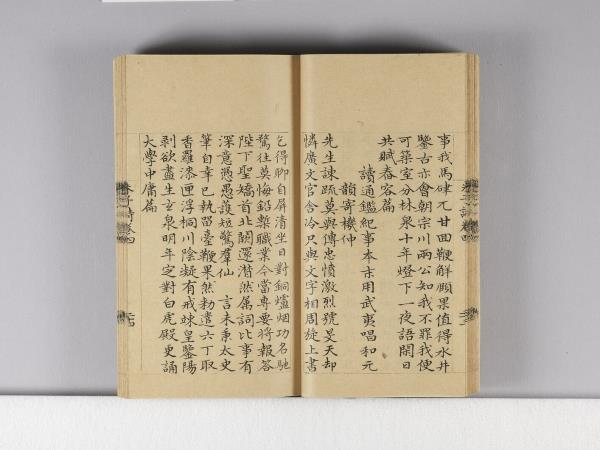 事我馬肆兀甘回鞭解頤果值得水井
鑒古亦會朝宗川兩公知我不罪我便
可築室分林泉十年燈下一夜語閒日
共賦春容篇
讀通鑑紀事本末用武夷唱和元
韻寄機仲
先生諫疏莫與傳忠憤激烈號旻天却
憐廣文官舍冷只與文字相周旋上書
乞得聊自屏清坐日對銅爐烟功名馳
騖往莫悔鉛槧職業今當專要將報答
陛下聖矯首北闕還潸然属詞比事有
深意憑愚護短驚羣仙言未乗太史
筆自幸已執留臺鞭果然勑遣六丁取
香羅漆匣浮桐川陰凝有戒竦皇鑒陽
剥欲盡生玄泉明年定對白虎殿更誦
大學中庸篇